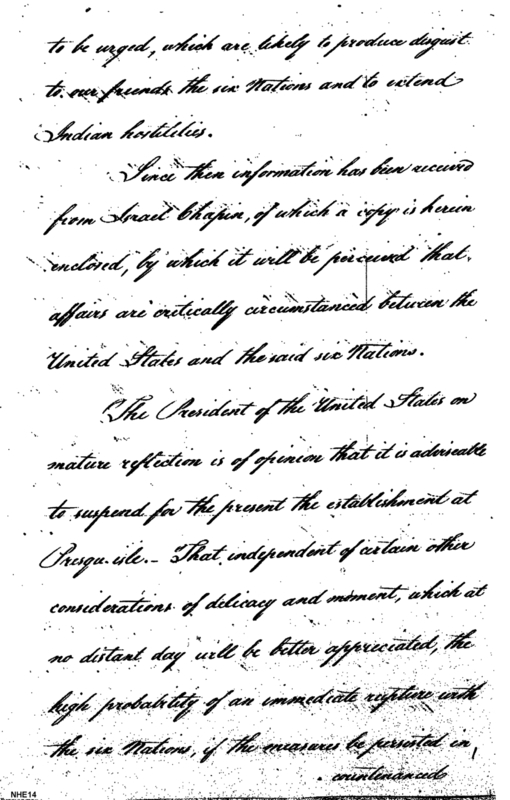 to be urged, which are likely to produce disgust
to our friends the six Nations and to extend
Indian hostilities.
Since then information has been received
from Israel Chapin, of which a copy is herein
enclosed, by which it will be perceived that
affairs are critically circumstanced between the
United States and the said six Nations.
The President of the United States on
mature reflection is of opinion that it is adviseable
to suspend for the present the establishment at
Presqu-isle.- That independent of certain other
considerations of delicacy and moment, which at
no distant day will be better appreciated, the
high probability of an immediate rupture with
the six Nations, if the measures be persisted in,
countenanced
NHE14